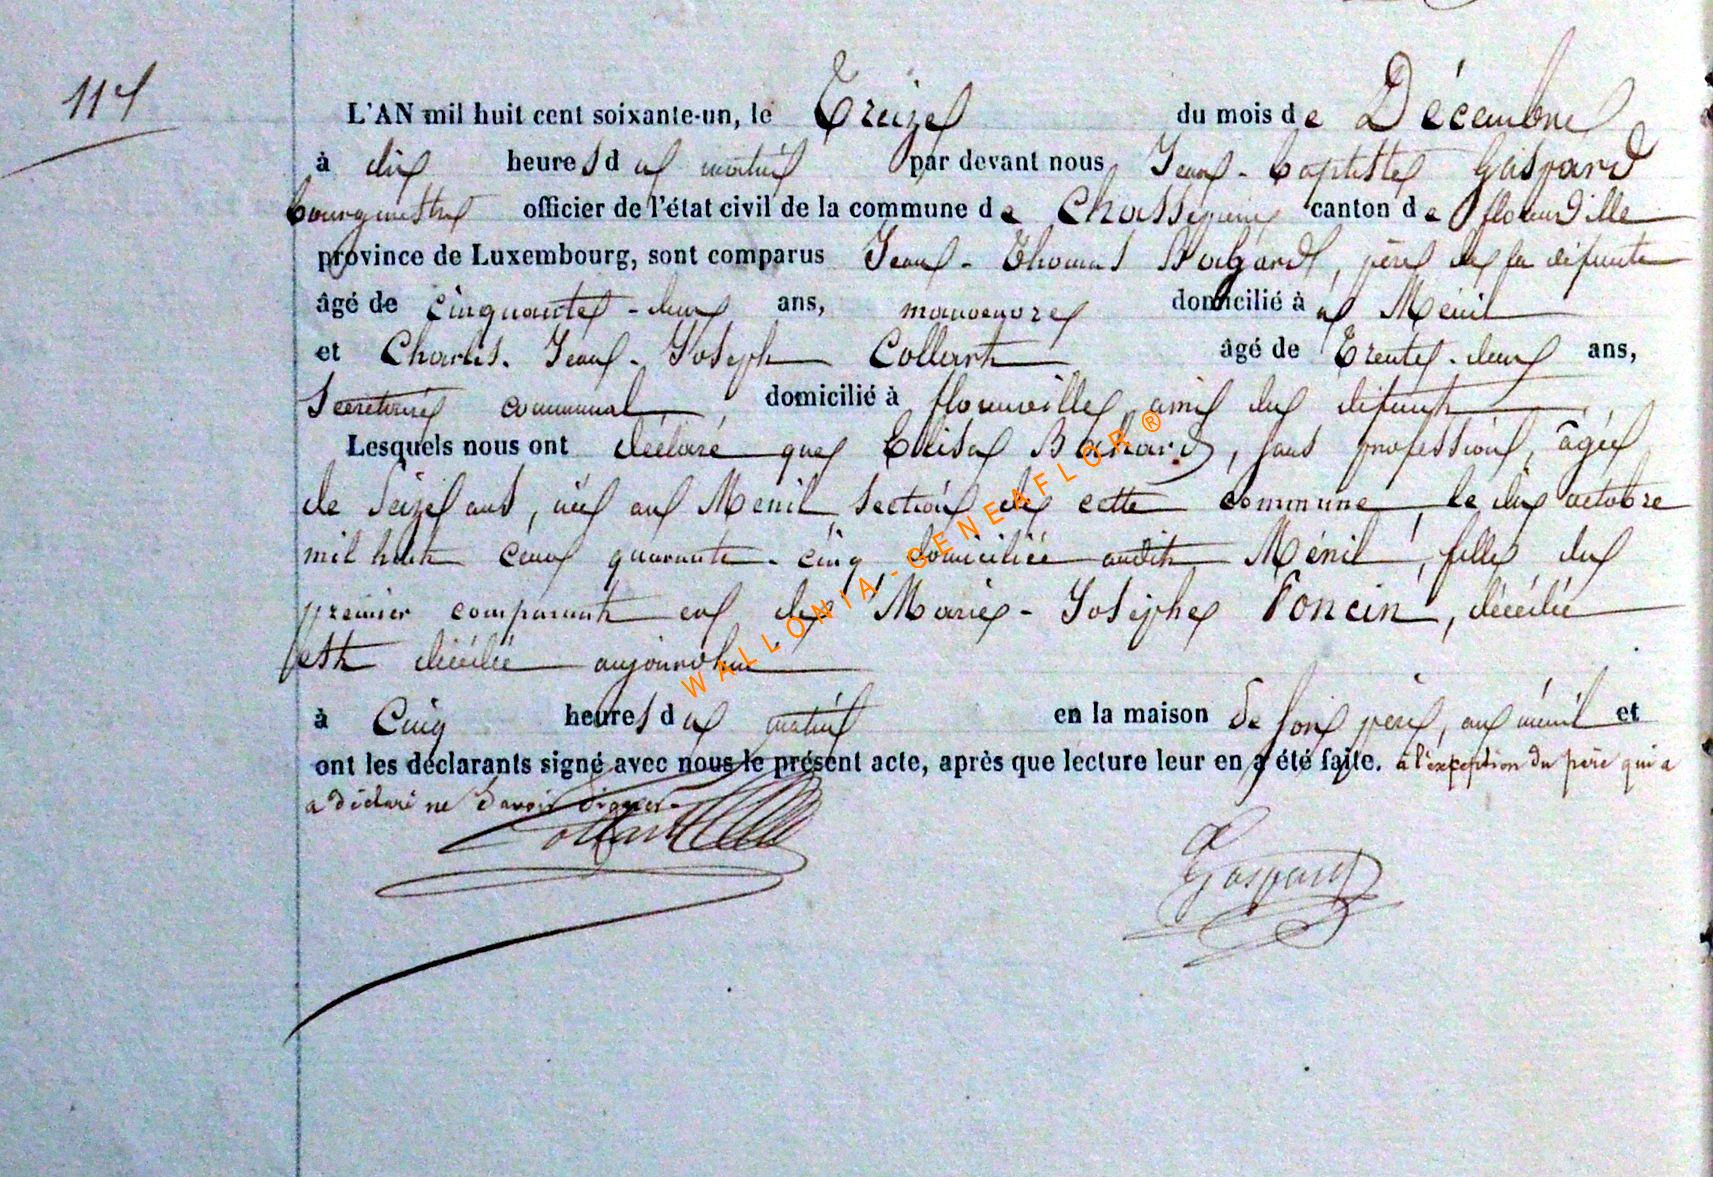 114
L'AN mil huit cent soixante-un, le Treize du mois de Décembre
à dix heures du matin par devant nous Jean-Baptiste Gaspard
bourgmestre officier de l'état civil de la commune de Chassepierre canton de florenville
province de Luxembourg, sont comparus Jean-Thomas père de la défunte
âgé de cinquante-deux ans, manœuvre domicilié à Ménil
et Charles-Jean-Joseph Collart âgé de Trente-deux ans,
Secrétaire communal, domicilié à florenville, ami du défunt
Lesquels nous ont déclaré que Elisa , sans profession, âgée
de Seize ans, née au Ménil, section de cette commune, le dix octobre
mil huit cent quarante-cinq domiciliée audit Ménil, fille du
premier comparant et de Marie-Josephe Poncin, décédée
est décédée aujourd'hui
à Cinq heures du matin en la maison de son père, au ménil et
ont les déclarants signé avec nous le présent acte, après que lecture leur en a été faite. à l'exception du père qui a
a déclaré ne Savoir Signer.
Collart
Gaspard
WALLONIA-GENEAFLOR®